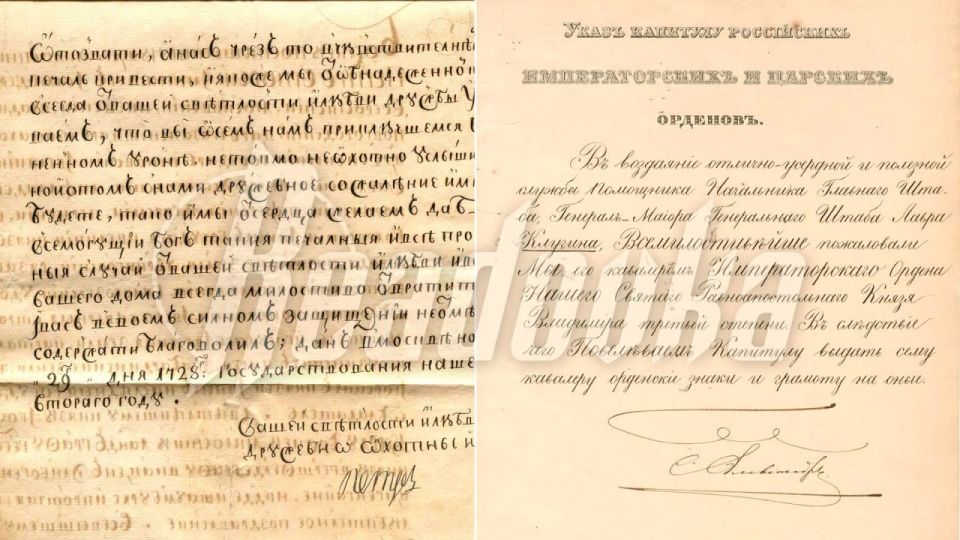 ѿтоздати, а насъ чрезъ то
печаль привести,
всегда ѿ вашей свѣтлости и любви дружбы
паемъ, что вы ѡ семъ намъ приключшемся
ненномъ уронѣ, не токмо неѡхотно услыши
ной о томъ с нами дружебное сожаление им
будете, тако и мы ѿ сердца желаемъ да
всемогущiи богъ такия печалныя
ныя случаи ѿ вашей свѣтлости и любви и
вашего дома всегда милостиво ѿвратит
и васъ въ своемъ силномъ защищенiи
содержати благоволилъ; данъ в москвѣ но
"29" дня 1728: государствования наше
втораго году.
Вашей свѣтлости и любви
дружебно ѡхотныи и
Петръ
Указъ капитулу россійскихъ
императорскихъ и царскихъ
орденовъ.
Въ воздаяніе отлично-усердной и полезной
службы Помощника Начальника Главнаго Шта-
ба, Генералъ-Маіора Генеральнаго Штаба Лавра
Клугина, Всемилостивѣйше пожаловали
Мы его кавалеромъ Императорскаго Ордена
Нашего Святаго Равноапостольнаго Князя
Владиміра третьей степени. Въ слѣдствіе
чего Повелѣваемъ Капитулу выдать сему
кавалеру орденскіе знаки и грамоту на оные.